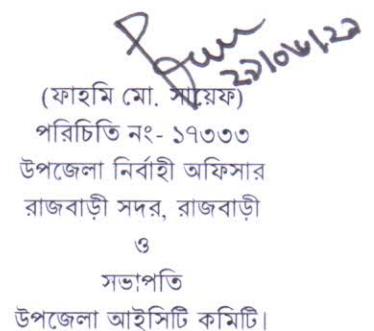 (ফাহমি মো. সায়েফ)
পরিচিতি নং- ১৭৩৩৩
উপজেলা নির্বাহী অফিসার
রাজবাড়ী সদর, রাজবাড়ী
ও
সভাপতি
উপজেলা আইসিটি কমিটি।